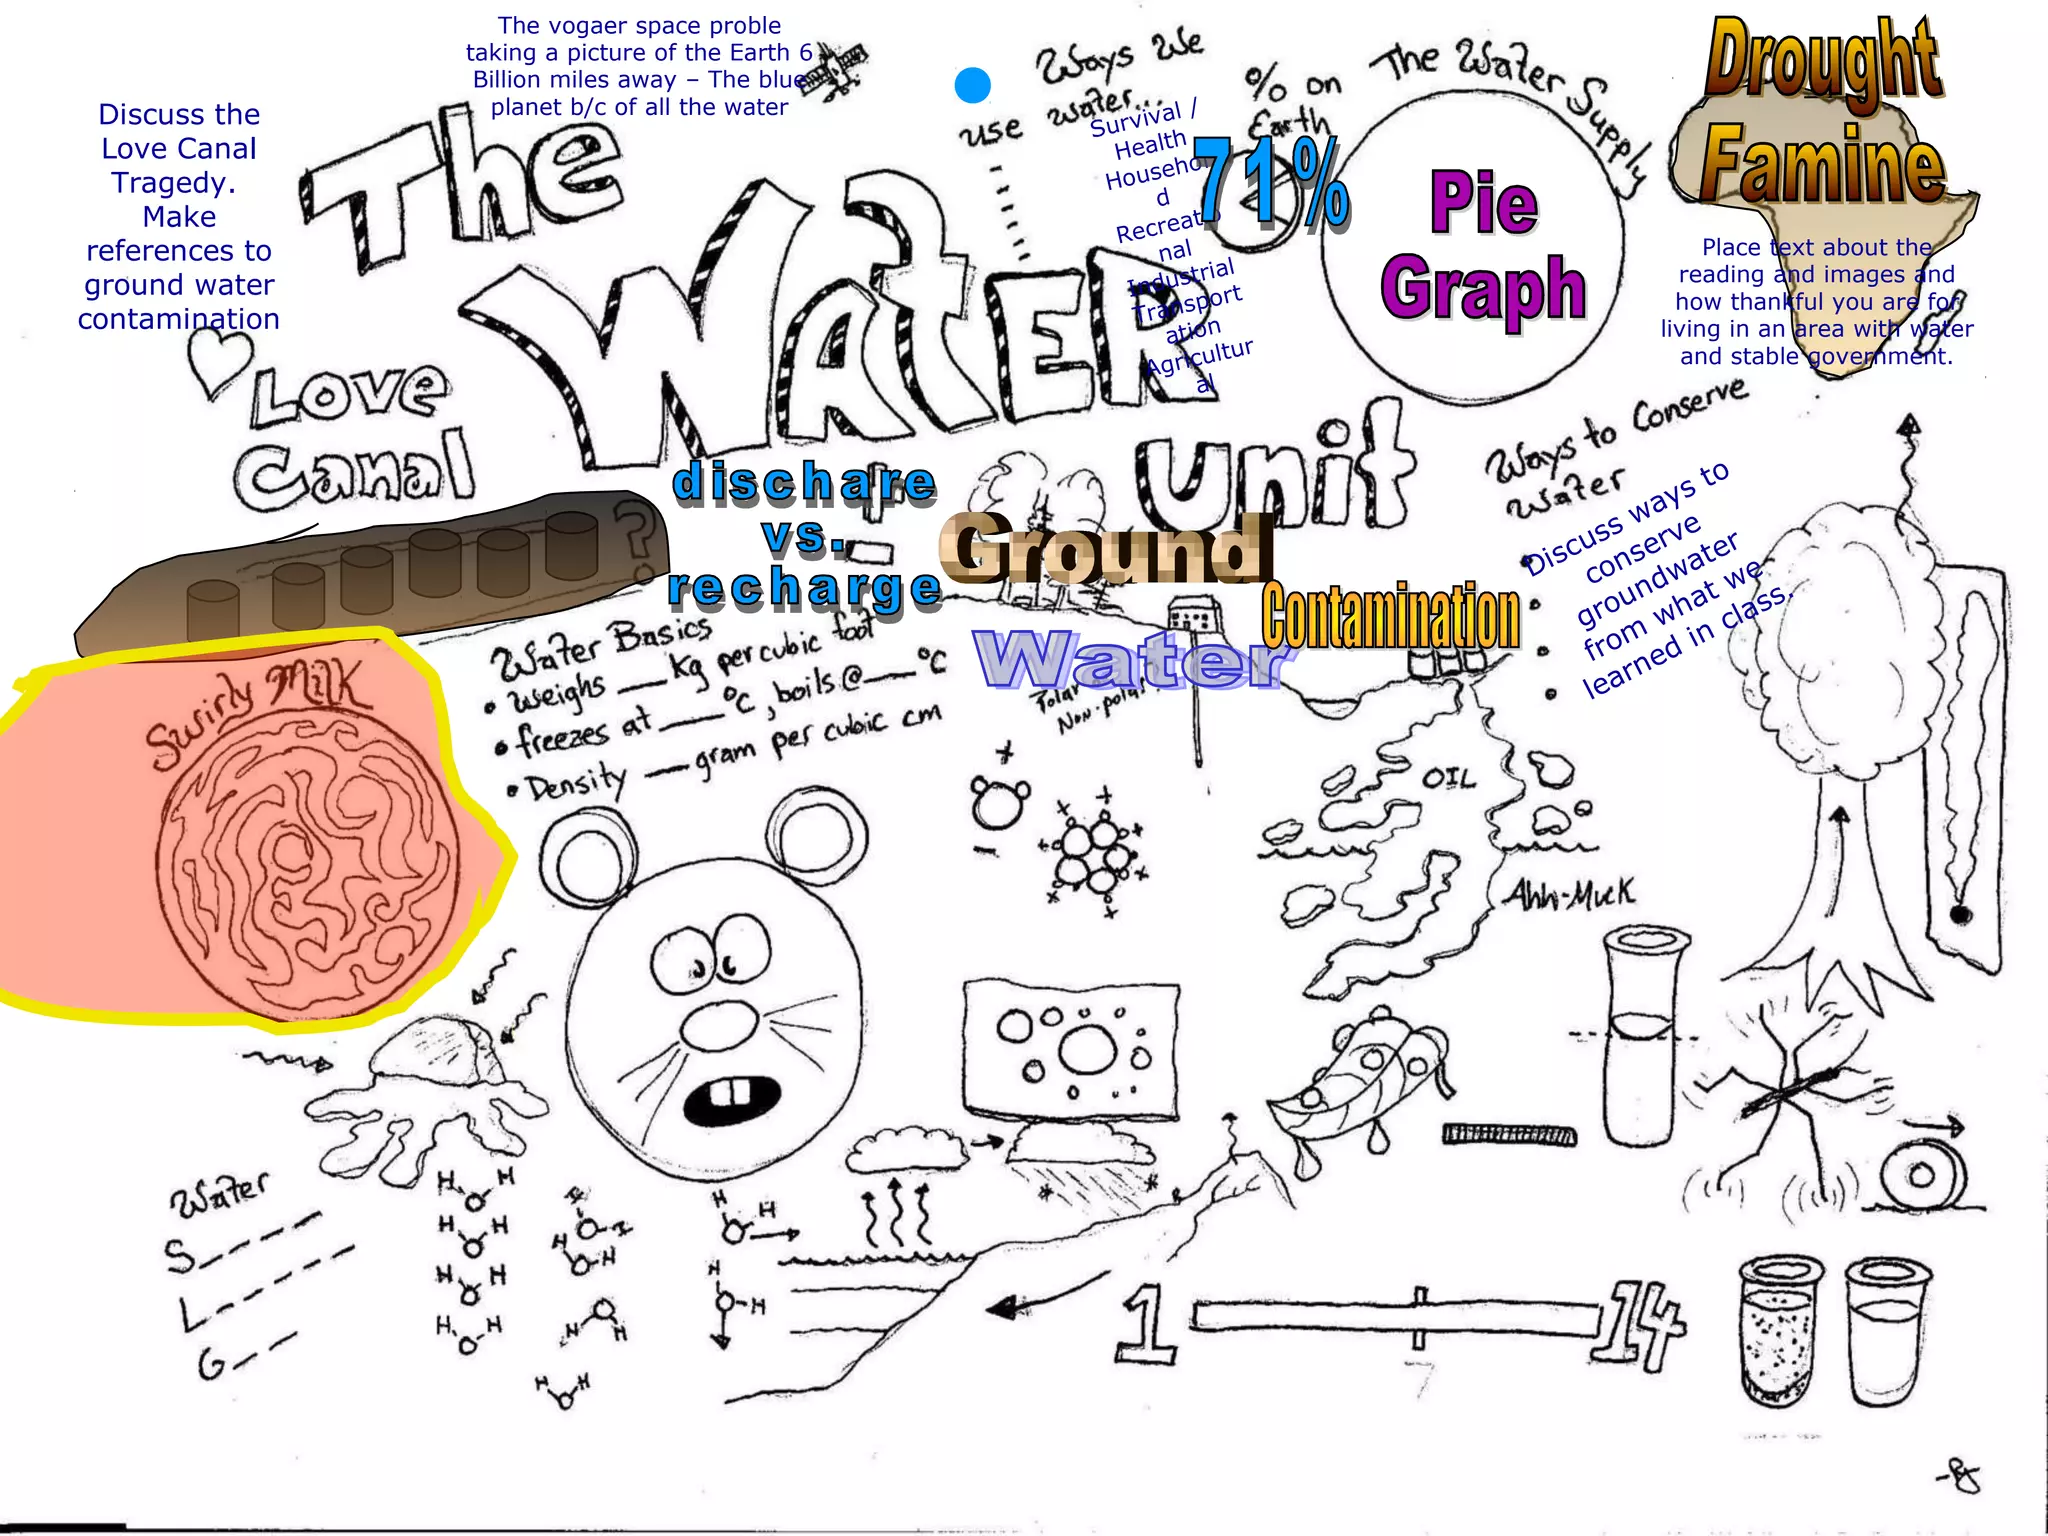 The vogaer space proble
taking a picture of the Earth 6
Billion miles away – The blue
planet b/c of all the water
Discuss the
Love Canal
Tragedy.
Make
references to
ground water
contamination
The
Water
Unit
Ways We
use water...
Survival /
Health
Househol
d
Recreatio
nal
Industrial
Transport
ation
Agricultur
al
% on
Earth
71%
The Water Supply
Pie
Graph
Drought
Famine
Place text about the
reading and images and
how thankful you are for
living in an area with water
and stable government.
Love
Canal
?
dischare
vs.
recharge
Ground
Water
Contamination
Ways to Conserve
Water
Discuss ways to
conserve
groundwater
from what we
learned in class.
Swirly Milk
Water Basics
• weighs ___ Kg per cubic foot
• freezes at ____ °C, boils @ ___ °C
• Density ___ gram per cubic cm
Polar
Non-polar
+
–
+ + + + + + +
OIL
Ahh-Muck
Water
S_ _ _ _ _
L_ _ _ _ _
G_ _ _
H H
H H
H H
H H
H H
H H
H H
H H
H H
H H
1
7
14